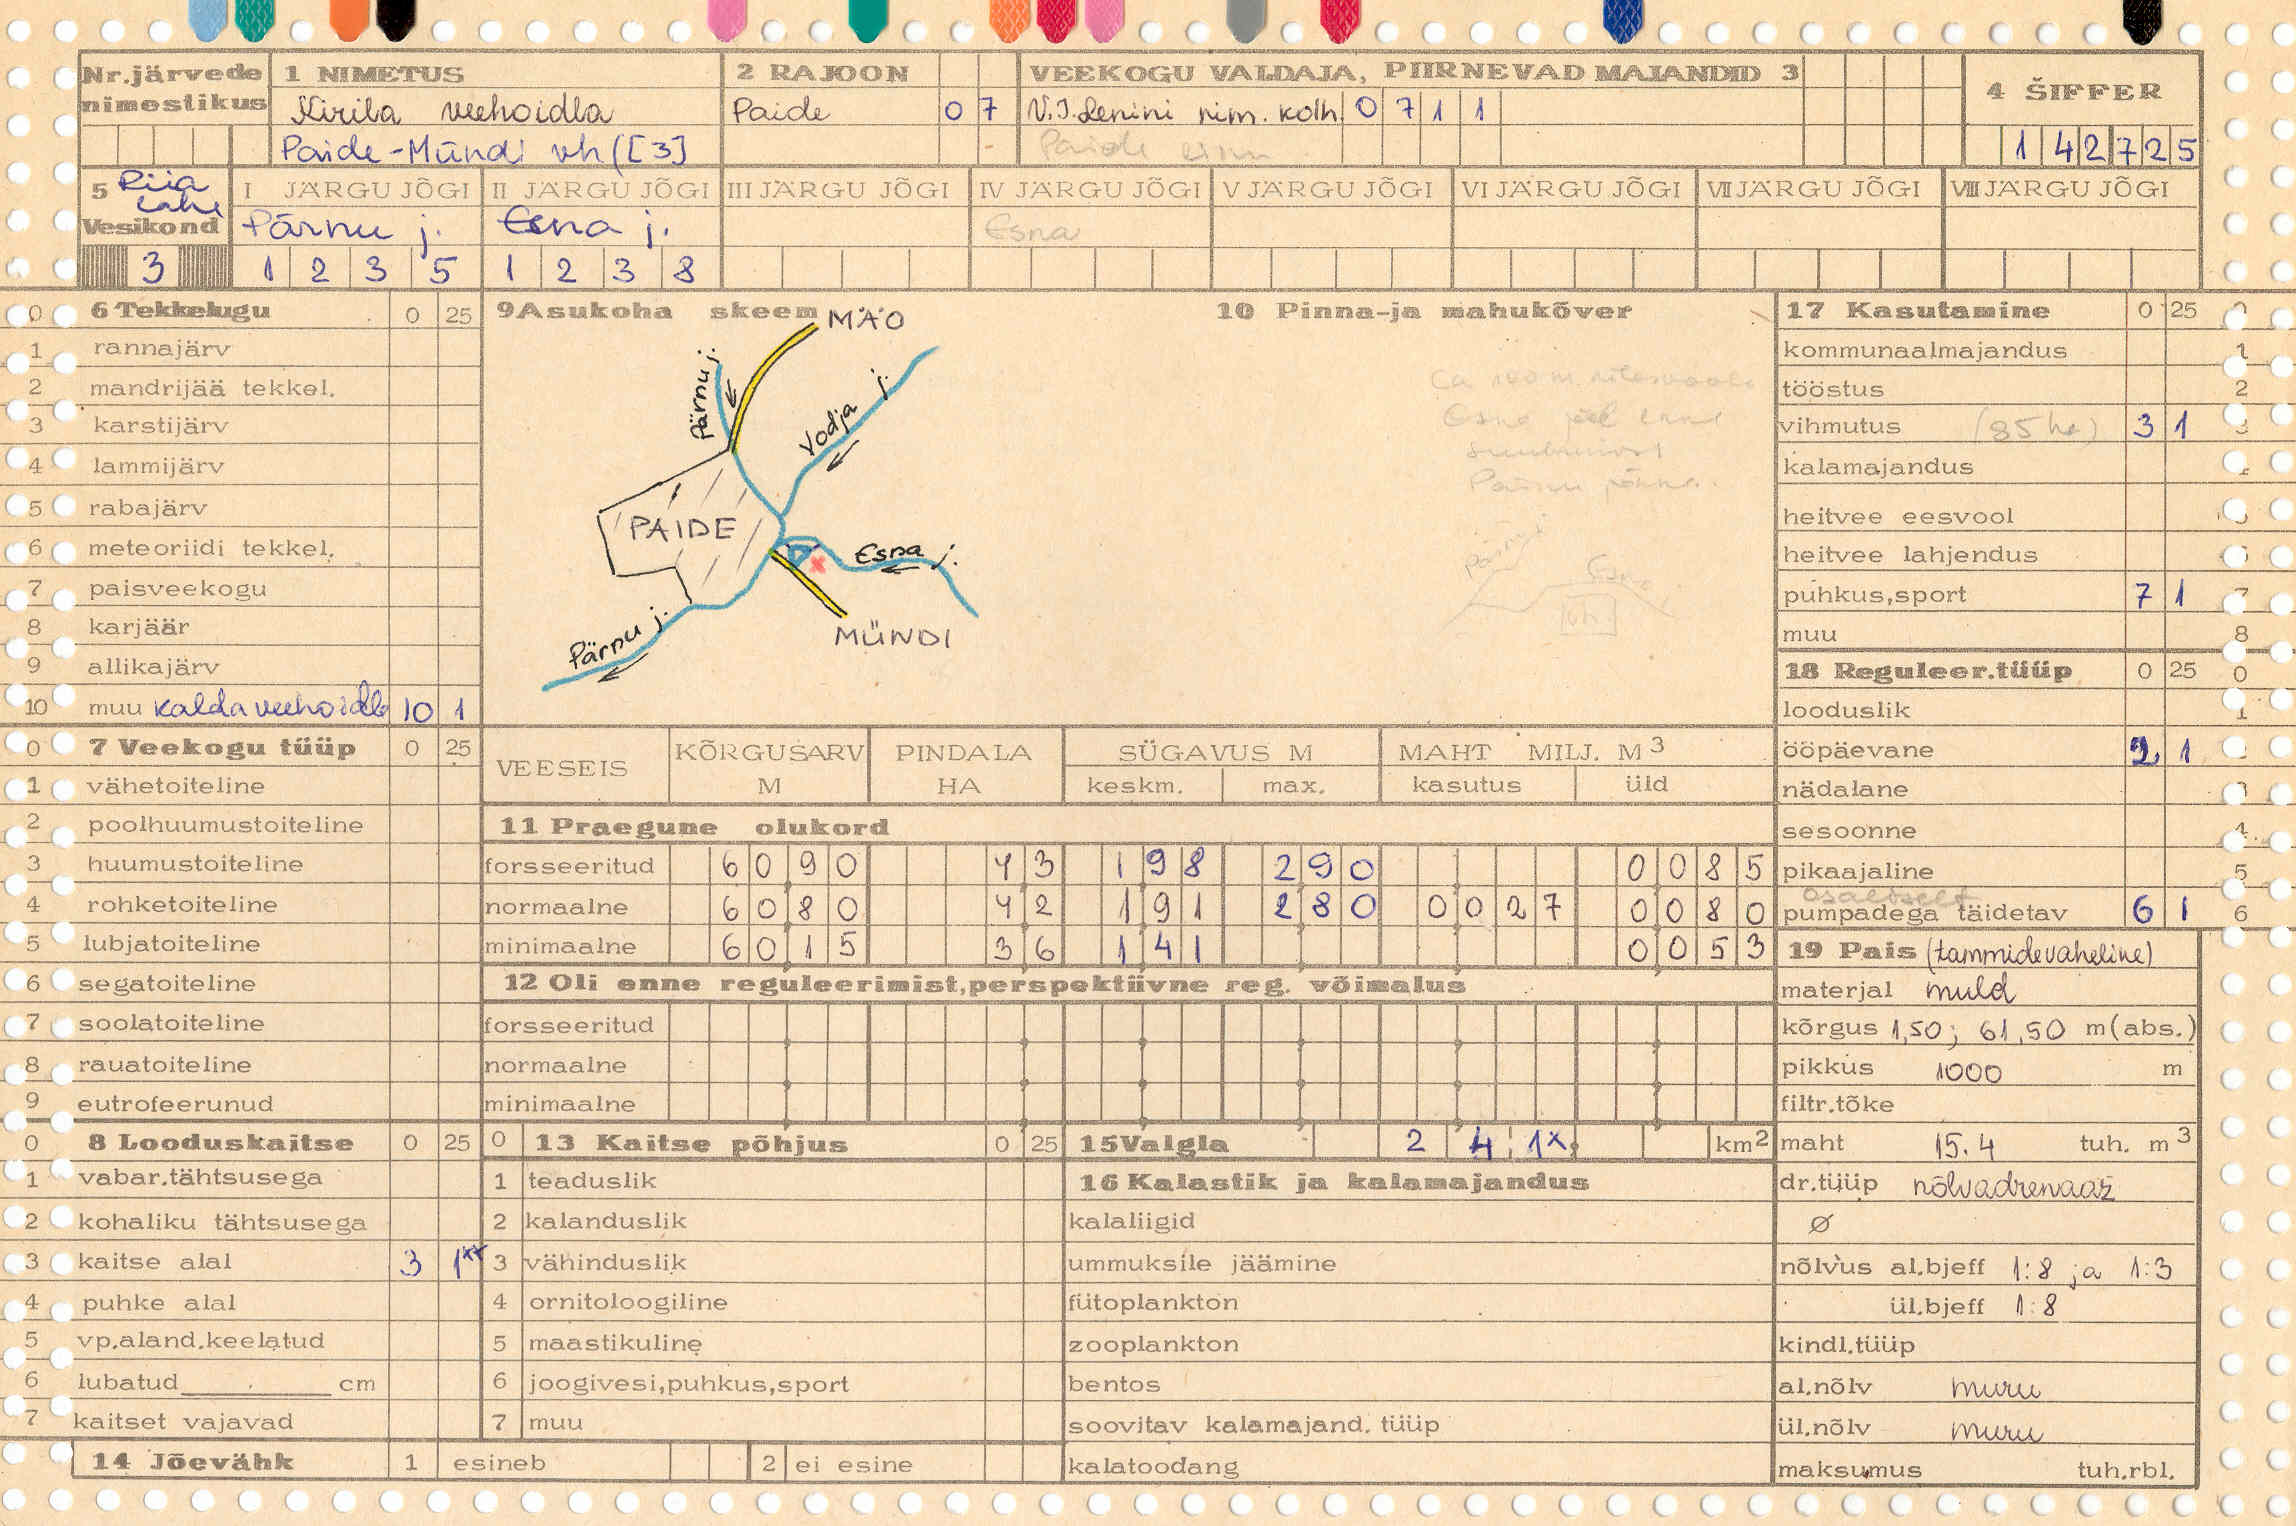 Nr.järvede nimestikus
1 NIMETUS
Kirila veehoidla
Paide-Mündi vh ([3]
2 RAJOON
Paide 0 7
VEEKOGU VALDAJA, PIIRNEVAD MAJANDID 3
V.I.Lenini nim. kolh. 0 7 1 1
Paide
4 ŠIFFER
1 4 2 7 2 5
5 Riia lahe
Vesikond
3
I JÄRGU JÕGI
Pärnu j.
1 2 3 5
II JÄRGU JÕGI
Esna j.
1 2 3 8
III JÄRGU JÕGI
IV JÄRGU JÕGI
Esna
V JÄRGU JÕGI
VI JÄRGU JÕGI
VII JÄRGU JÕGI
VIII JÄRGU JÕGI
0 6 Tekkelugu 0 25
1 rannajärv
2 mandrijää tekkel.
3 karstijärv
4 lammijärv
5 rabajärv
6 meteoriidi tekkel.
7 paisveekogu
8 karjäär
9 allikajärv
10 muu kaldaveehoidla 10 1
0 7 Veekogu tüüp 0 25
1 vähetoiteline
2 poolhuumustoiteline
3 huumustoiteline
4 rohketoiteline
5 lubjatoiteline
6 segatoiteline
7 soolatoiteline
8 rauatoiteline
9 eutrofeerunud
0 8 Looduskaitse 0 25
1 vabar.tähtsusega
2 kohaliku tähtsusega
3 kaitse alal 3 1xx
4 puhke alal
5 vp.aland.keelatud
6 lubatud cm
7 kaitset vajavad
9 Asukoha skeem
MÄO
Pärnu j.
Vodja j.
PAIDE
Esna j.
x
MÜNDI
Pärnu j.
10 Pinna-ja mahukõver
Esna
Pärnu
vh.
VEESEIS
KÕRGUSARV M
PINDALA HA
SÜGAVUS M
keskm. max.
MAHT MILJ. M3
kasutus üld
11 Praegune olukord
forsseeritud 6 0 9 0 4 3 1 9 8 2 9 0 0 0 8 5
normaalne 6 0 8 0 4 2 1 9 1 2 8 0 0 0 2 7 0 0 8 0
minimaalne 6 0 1 5 3 6 1 4 1 0 0 5 3
12 Oli enne reguleerimist,perspektiivne reg. võimalus
forsseeritud
normaalne
minimaalne
0 13 Kaitse põhjus 0 25
1 teaduslik
2 kalanduslik
3 vähinduslik
4 ornitoloogiline
5 maastikuline
6 joogivesi,puhkus,sport
7 muu
14 Jõevähk 1 esineb 2 ei esine
15 Valgla 2 4 1x km2
16 Kalastik ja kalamajandus
kalaliigid
ummuksile jäämine
fütoplankton
zooplankton
bentos
soovitav kalamajand. tüüp
kalatoodang
17 Kasutamine 0 25
kommunaalmajandus 1
tööstus 2
vihmutus (85 ha) 3 1
kalamajandus
heitvee eesvool
heitvee lahjendus
puhkus,sport 7 1 7
muu 8
18 Reguleer.tüüp 0 25 0
looduslik 1
ööpäevane 2 1
nädalane
sesoonne 4
pikaajaline 5
osaliselt
pumpadega täidetav 6 1 6
19 Pais (tammidevaheline)
materjal muld
kõrgus 1,50; 61,50 m(abs.)
pikkus 1000 m
filtr.tõke
maht 15.4 tuh. m3
dr.tüüp nõlvadrenaaž
Ø
nõlvus al.bjeff 1:8 ja 1:3
ül.bjeff 1:8
kindl.tüüp
al.nõlv muru
ül.nõlv muru
maksumus tuh.rbl.